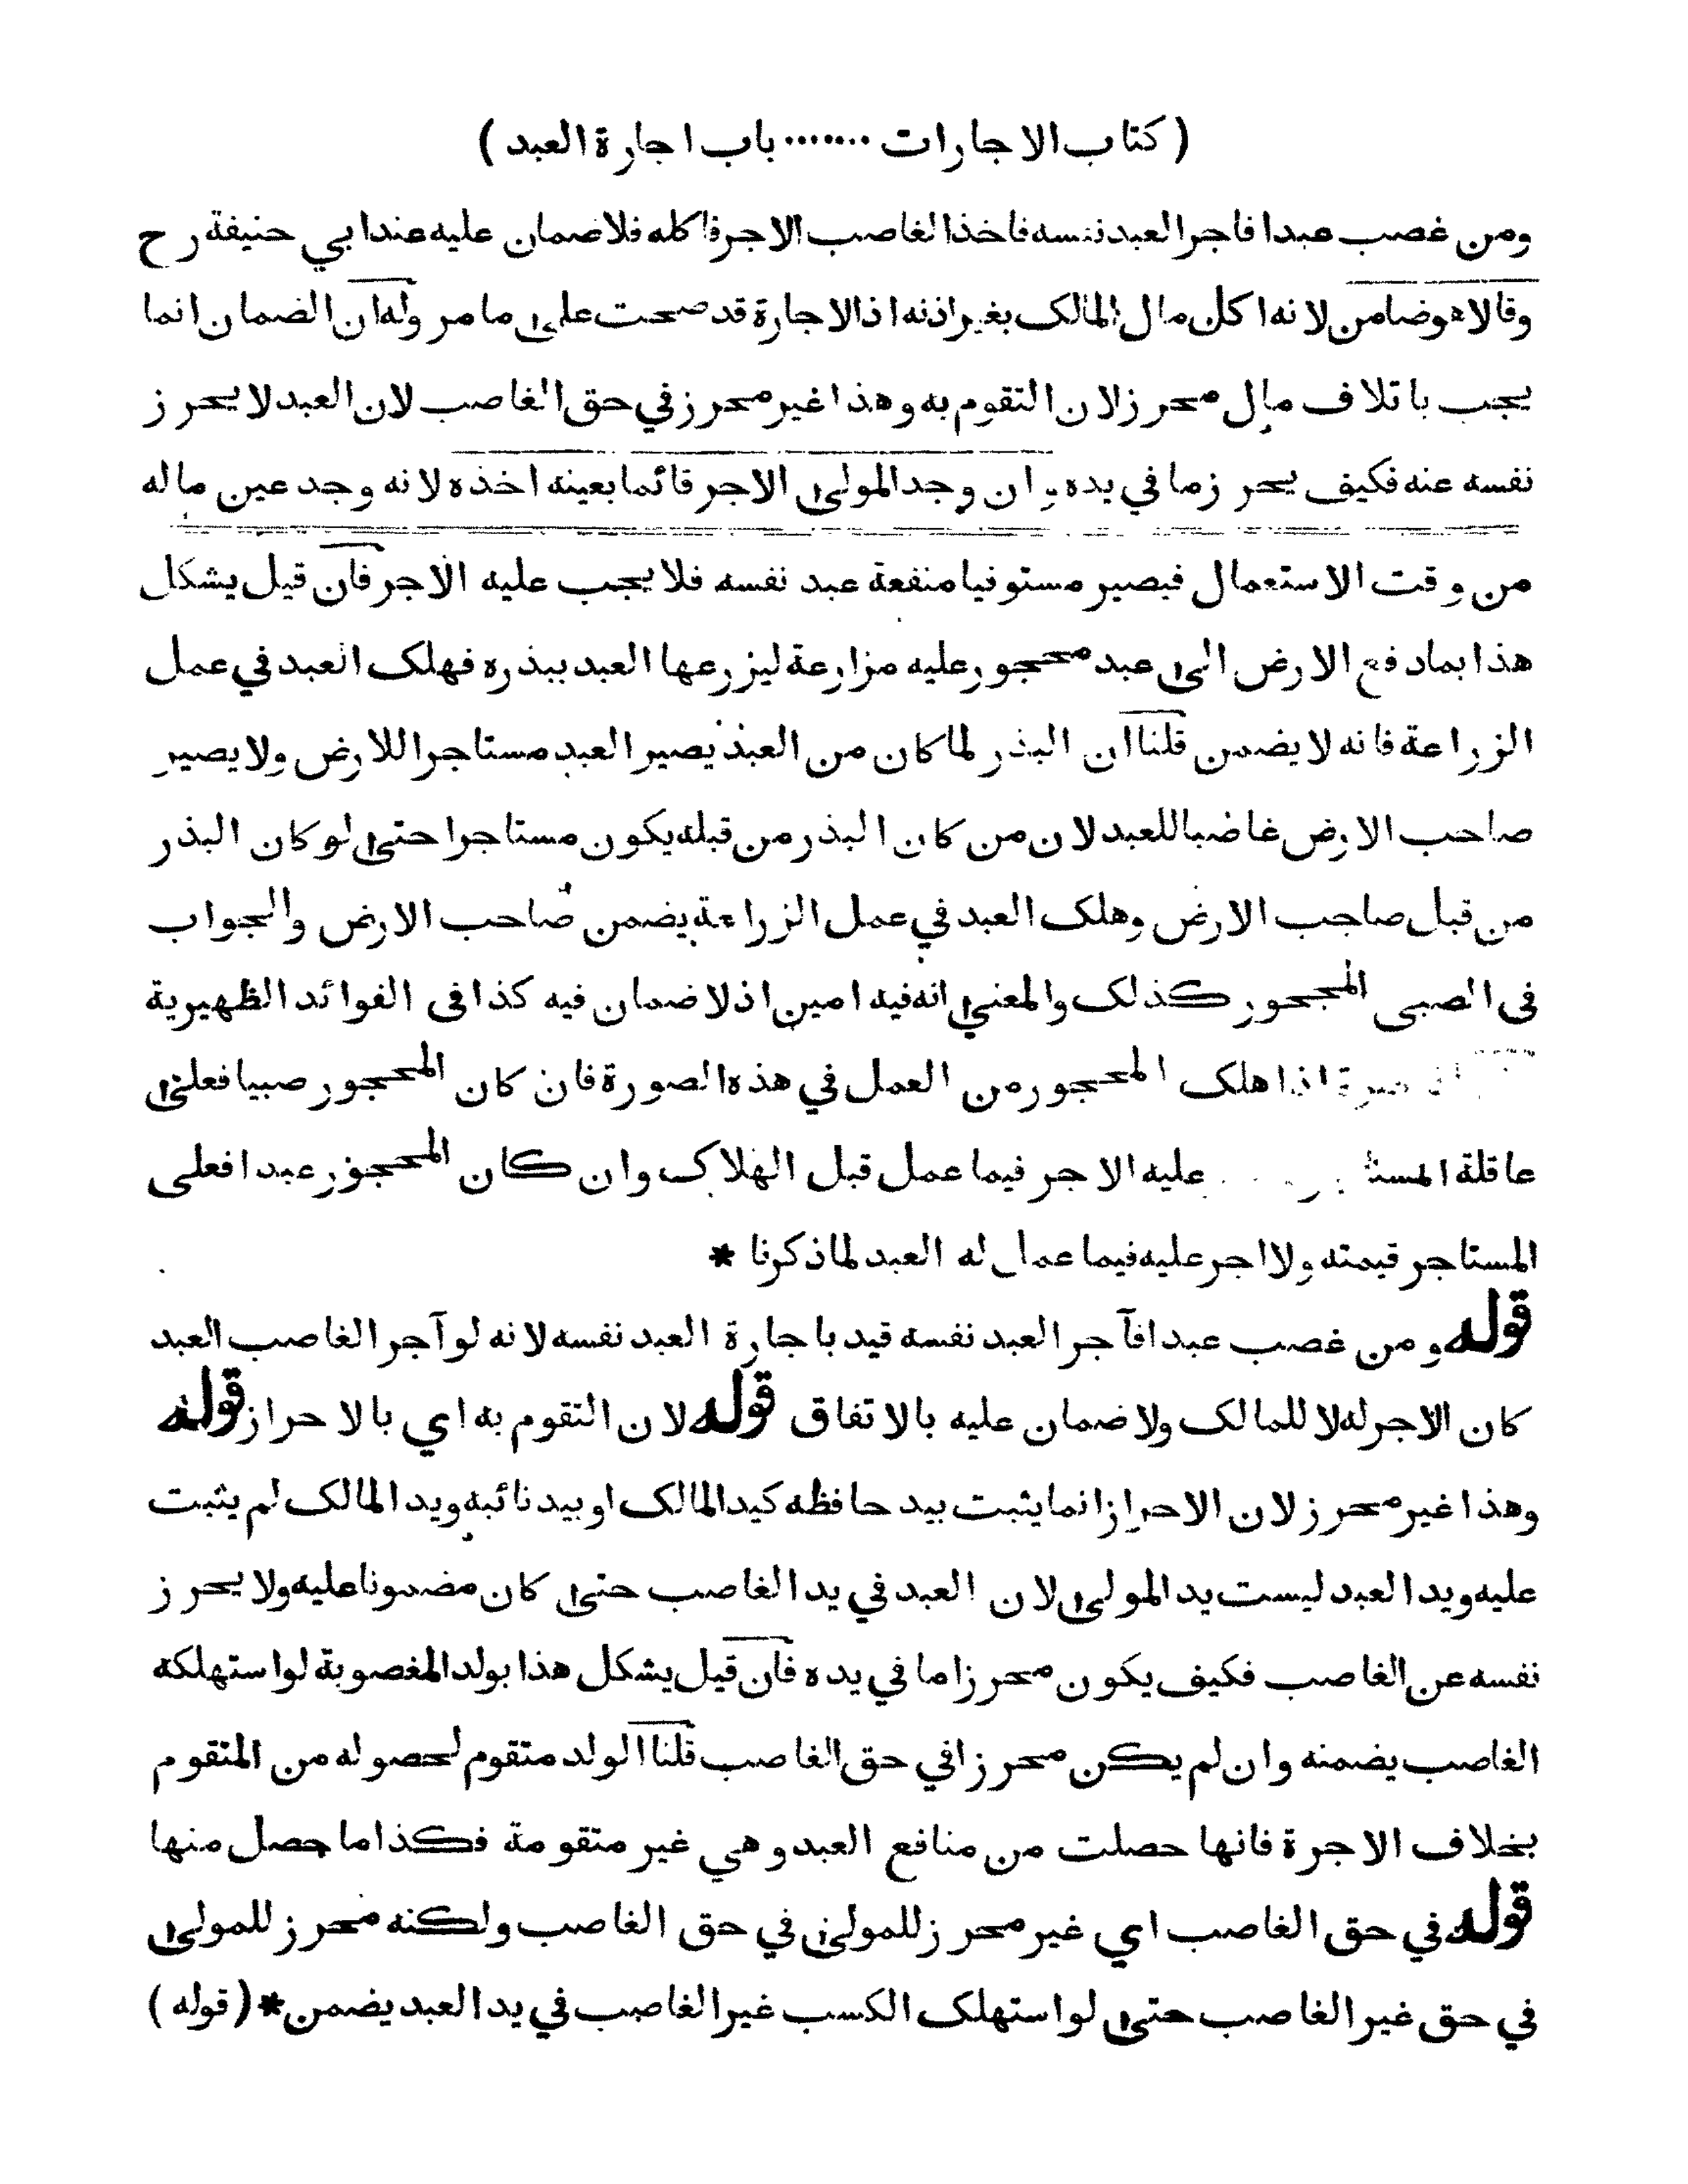 ( كتاب الاجارات ······· باب اجارة العبد )
ومن غصب عبدا فاجر العبد نفسه فاخذ الغاصب الاجر فاكله فلا ضمان عليه عند ابي حنيفة رح
وقالا هو ضامن لانه اكل مال المالك بغير اذنه اذ الاجارة قد صحت على ما مر وله ان الضمان انما
يجب باتلاف مال محرز لان التقوم به وهذا غير محرز في حق الغاصب لان العبد لا يحرز
نفسه عنه فكيف يحرز ما في يده وان وجد المولى الاجر قائما بعينه اخذه لانه وجد عين ماله
من وقت الاستعمال فيصير مستوفيا منفعة عبد نفسه فلا يجب عليه الاجر فان قيل يشكل
هذا بما دفع الارض الى عبد محجور عليه مزارعة ليزرعها العبد ببذره فهلك العبد في عمل
الزراعة فانه لا يضمن قلنا ان البذر لما كان من العبد يصير العبد مستاجرا للارض ولا يصير
صاحب الارض غاصبا للعبد لان من كان البذر من قبله يكون مستاجرا حتى لو كان البذر
من قبل صاحب الارض وهلك العبد في عمل الزراعة يضمن صاحب الارض والجواب
في الصبي المحجور كذلك والمعنى انه فيه امين اذ لا ضمان فيه كذا في الفوائد الظهيرية
اذا هلك المحجور من العمل في هذه الصورة فان كان المحجور صبيا فعلى
عاقلة عليه الاجر فيما عمل قبل الهلاك وان كان المحجور عبدا فعلى
المستاجر قيمته ولا اجر عليه فيما عمل له العبد لما ذكرنا *
قوله ومن غصب عبدا فآجر العبد نفسه قيد باجارة العبد نفسه لانه لو آجر الغاصب العبد
كان الاجر له لا للمالك ولا ضمان عليه بالاتفاق قوله لان التقوم به اي بالاحراز قوله
وهذا غير محرز لان الاحراز انما يثبت بيد حافظه كيد المالك او بيد نائبه ويد المالك لم يثبت
عليه ويد العبد ليست يد المولى لان العبد في يد الغاصب حتى كان مضمونا عليه ولا يحرز
نفسه عن الغاصب فكيف يكون محرزا ما في يده فان قيل يشكل هذا بولد المغصوبة لو استهلكه
الغاصب يضمنه وان لم يكن محرزا في حق الغاصب قلنا الولد متقوم لحصوله من المتقوم
بخلاف الاجرة فانها حصلت من منافع العبد وهي غير متقومة فكذا ما حصل منها
قوله في حق الغاصب اي غير محرز للمولى في حق الغاصب ولكنه محرز للمولى
في حق غير الغاصب حتى لو استهلك الكسب غير الغاصب في يد العبد يضمن * ( قوله )